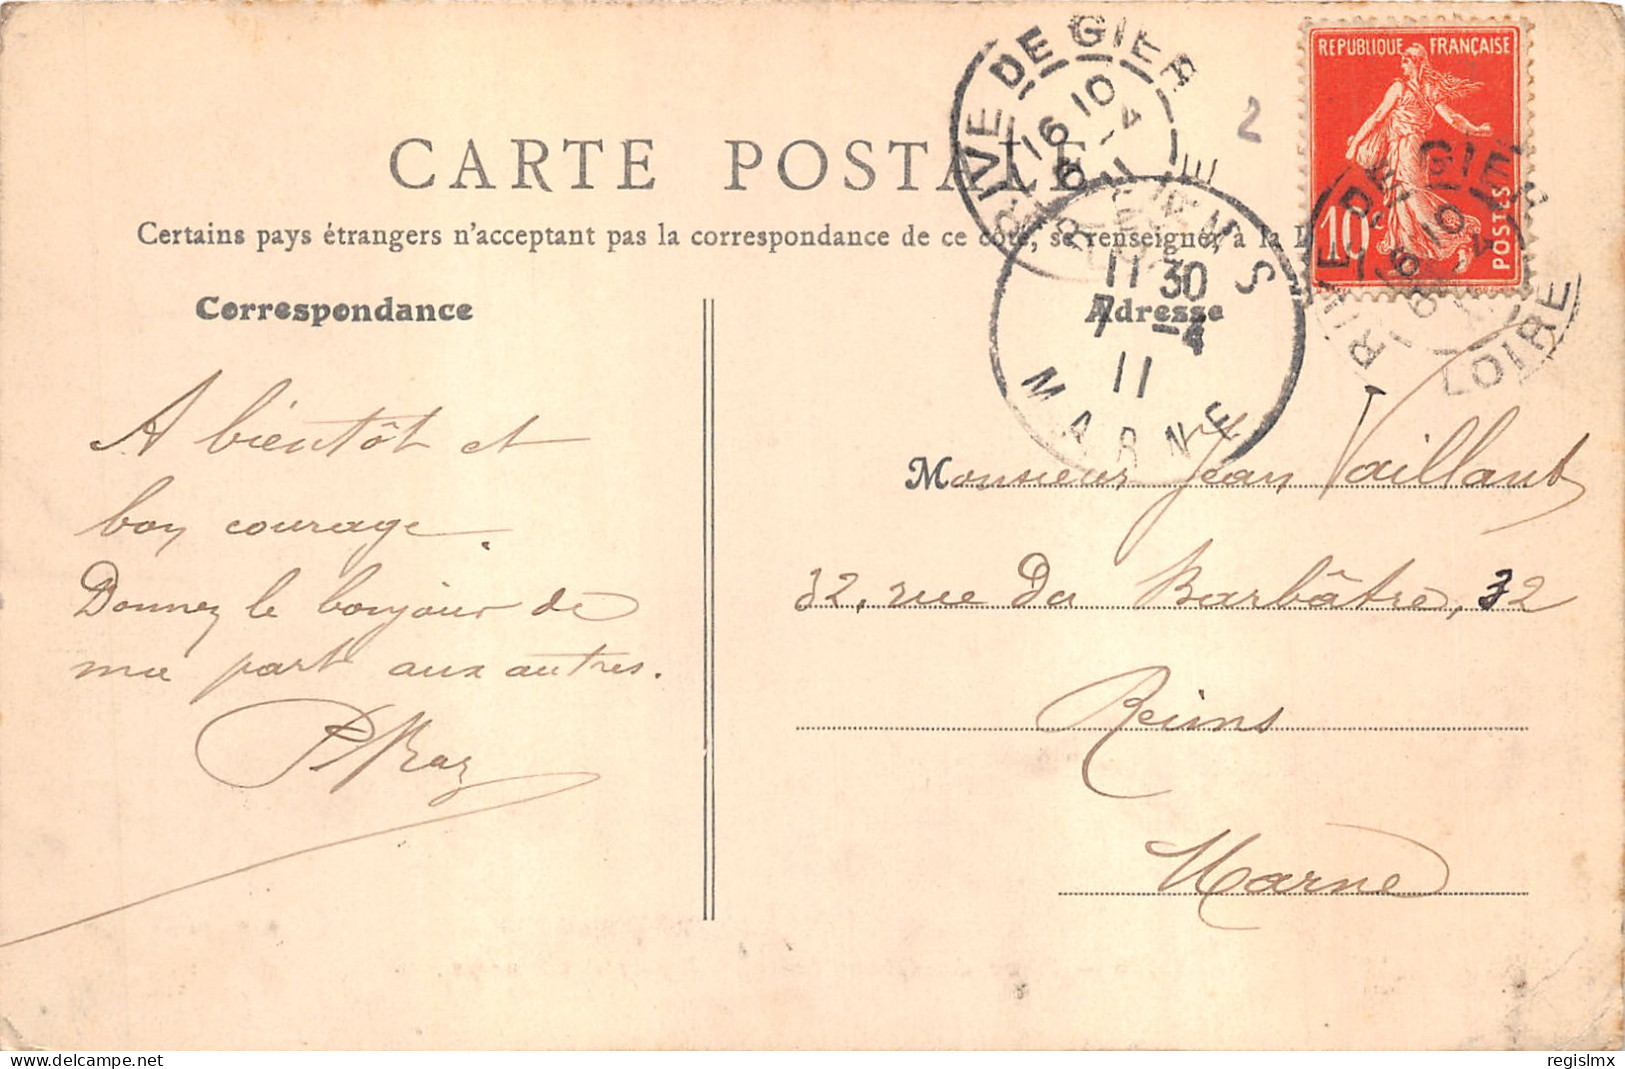 CARTE POSTALE
Certains pays étrangers n'acceptant pas la correspondance de ce côté, se renseigner à la
Correspondance
Adresse
RIVE DE GIER
16 10
6 - 4
11
LOIRE
REIMS
11 30
7 - 4
11
MARNE
2
REPUBLIQUE FRANÇAISE
10
POSTES
RIVE DE GIER
16 10
6 4
LOIRE
A bientôt et
bon courage.
Donnez le bonjour de
ma part aux autres.
Monsieur Jean Vaillant
32, rue Du Barbâtre, 32
Reims
Marne
www.delcampe.net
regislmx